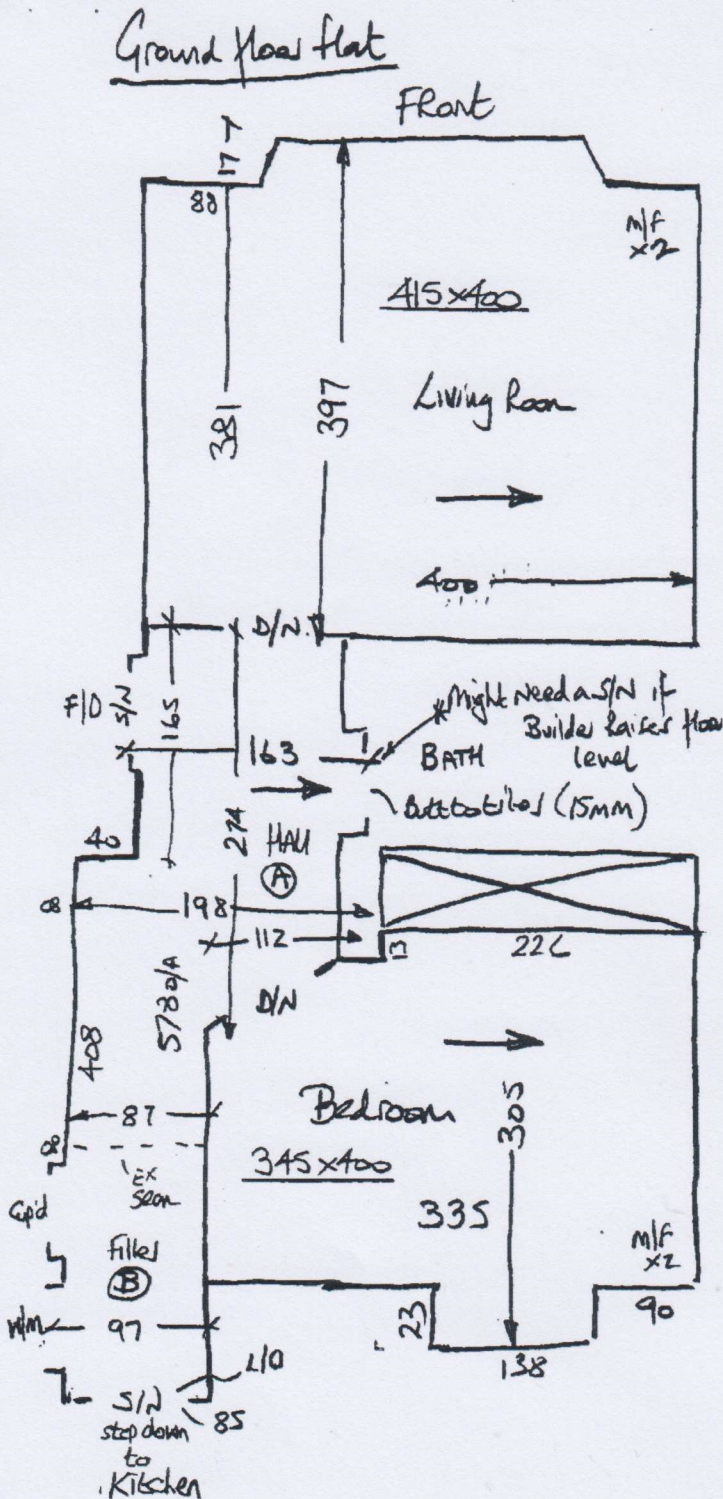 Ground floor flat
Front
17
88
M/F
x2
415x400
381
397
Living Room
400
D/N
F/D
S/N
165
163
*Might Need a S/N if
Builder Raises floor
level
BATH
Butt to tiles (15mm)
274
HALL
A
40
80
198
112
13
226
D/N
408
578 o/A
87
80
Ex
Seam
Bedroom
345x400
305
335
M/F
x2
Cup'd
Filler
B
W/M
97
23
90
138
L/O
S/N
85
step down
to
Kitchen